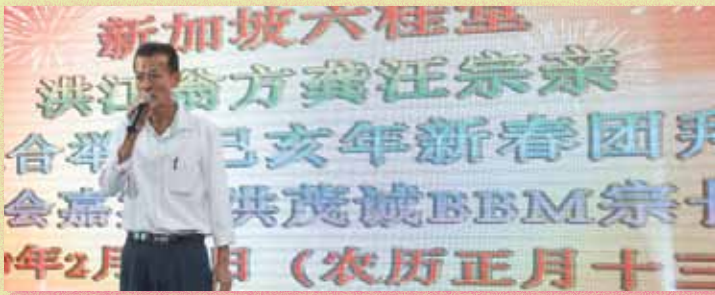 新加坡六桂堂
洪江翁方龚汪宗亲
合举 己亥年新春团拜
会嘉 洪茂诚BBM宗长
年2月 日（农历正月十三